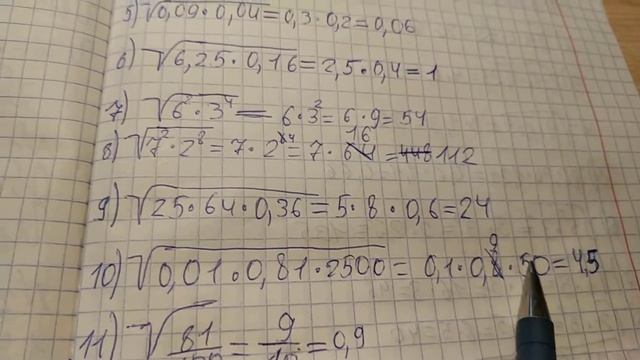 5) √0,09·0,04=0,3·0,2=0,06
6) √6,25·0,16=2,5·0,4=1
7) √6²·3⁴=6·3²=6·9=54
8) √7²·2⁸=7·2⁴=7·16=112
9) √25·64·0,36=5·8·0,6=24
10) √0,01·0,81·2500=0,1·0,9·50=4,5
11) √81/100=9/10=0,9